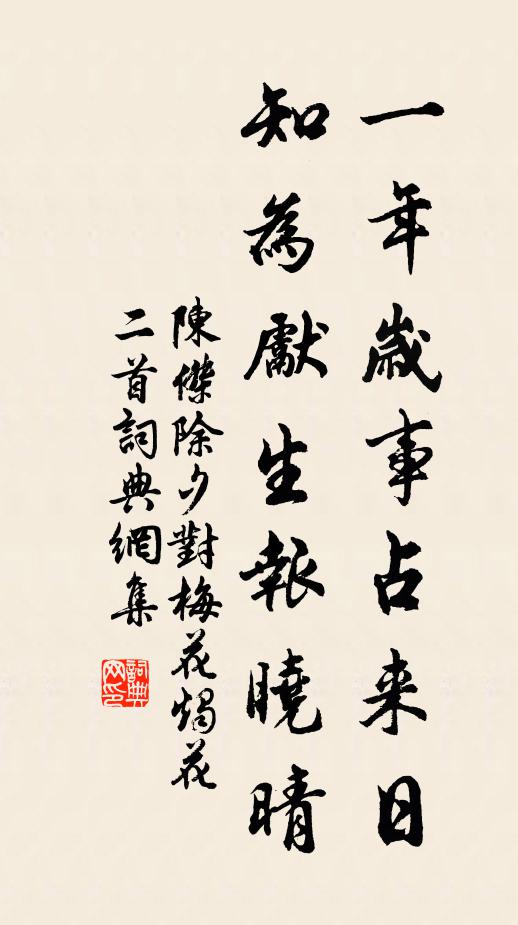 一年歲事占来日
知為獻生報曉晴
陳傑除夕對梅花燭花
二首詞典網集
詞典
网印